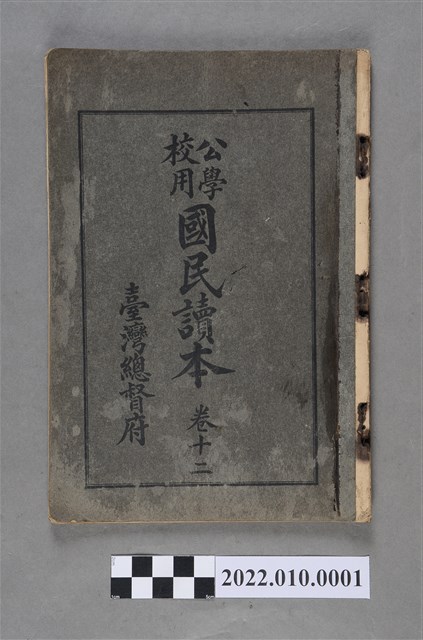 公學
校用
國民讀本
卷十二
臺灣總督府
2022.010.0001